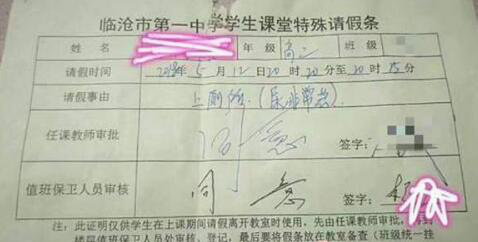 临沧市第一中学学生课堂特殊请假条
姓名 年级 高二 班级
请假时间 2018年5月12日20时20分至20时25分
请假事由 上厕所.(尿非常急)
任课教师审批 同意 签字:
值班保卫人员审核 同意 签字:
注:此证明仅供学生在上课期间请假离开教室时使用,先由任课教师审批,再到
楼层值班保卫人员处审核、登记,最后要将假条放在教室备查(班级统一挂